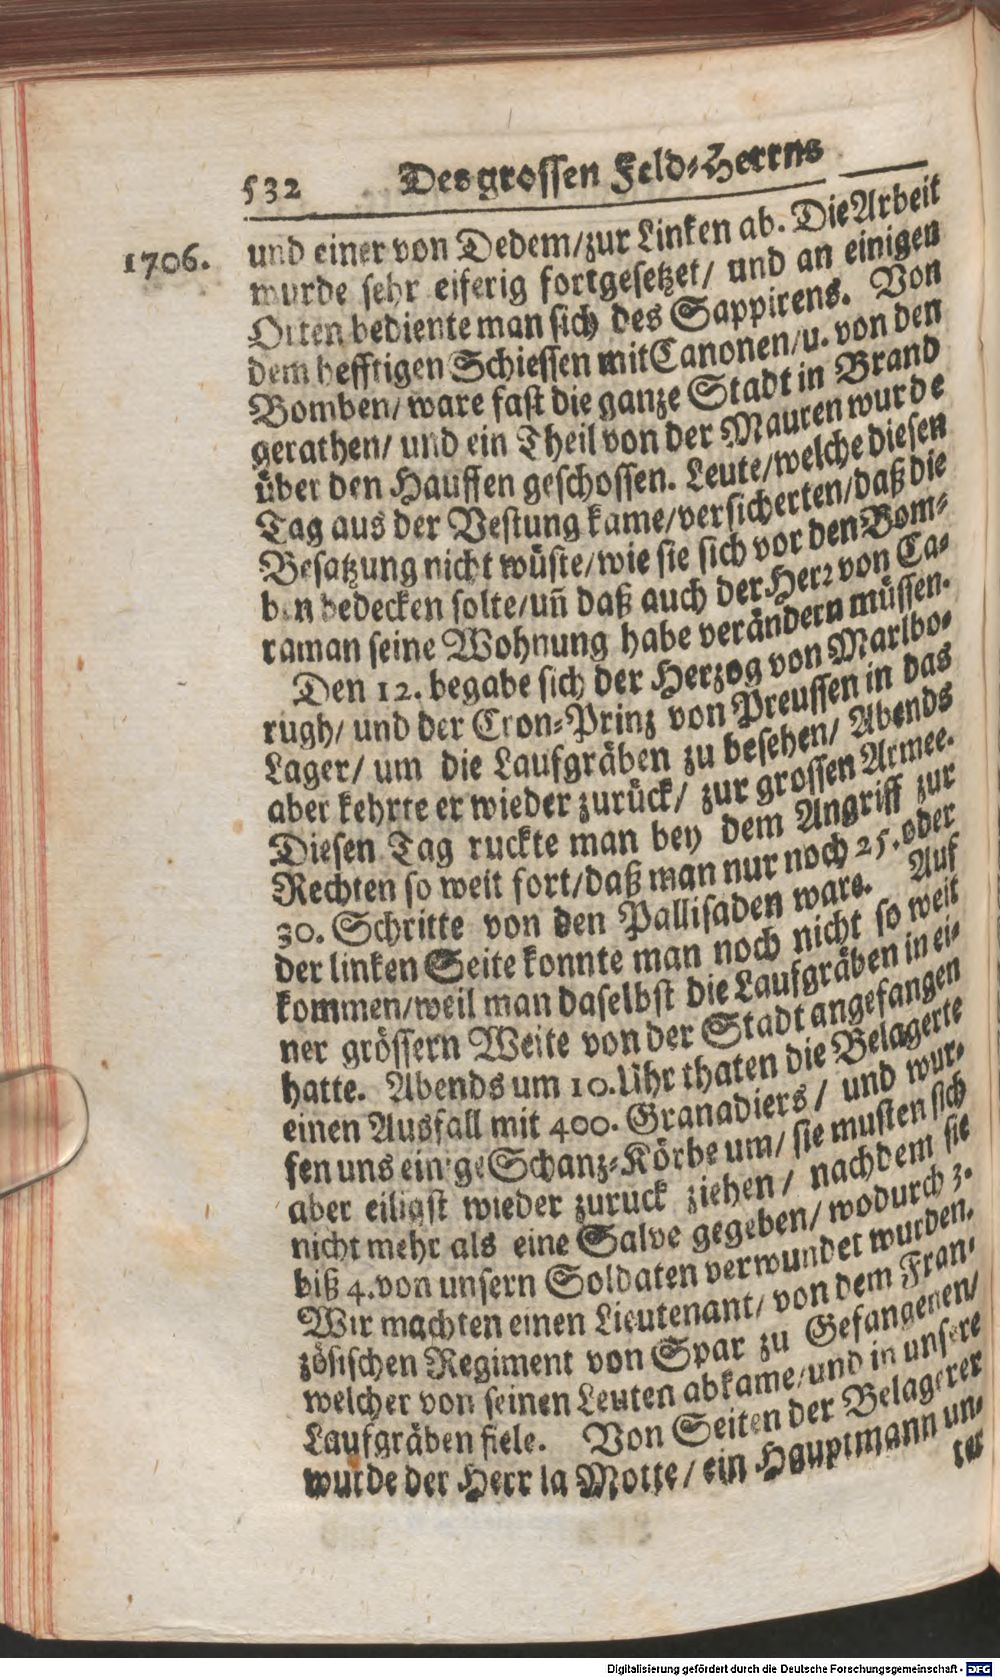 532 Des grossen Feld-Herrns
1706. und einer von Dedem/zur Linken ab. Die Arbeit
wurde sehr eiferig fortgesetzet/ und an einigen
Orten bediente man sich des Sappirens. Von
dem hefftigen Schiessen mit Canonen/u. von den
Bomben/ ware fast die ganze Stadt in Brand
gerathen/ und ein Theil von der Mauren wurde
über den Hauffen geschossen. Leute/welche diesen
Tag aus der Vestung kame/versicherten/daß die
Besatzung nicht wüste/wie sie sich vor den Bom-
ben bedecken solte/uñ daß auch der Herr von Ca-
raman seine Wohnung habe verändern müssen.
Den 12. begabe sich der Herzog von Marlbo-
rugh/ und der Cron-Prinz von Preussen in das
Lager/ um die Laufgräben zu besehen/ Abends
aber kehrte er wieder zurück/ zur grossen Armee.
Diesen Tag ruckte man bey dem Angriff zur
Rechten so weit fort/daß man nur noch 25. oder
30. Schritte von den Pallisaden ware. Auf
der linken Seite konnte man noch nicht so weit
kommen/weil man daselbst die Laufgräben in ei-
ner grössern Weite von der Stadt angefangen
hatte. Abends um 10. Uhr thaten die Belagerte
einen Ausfall mit 400. Granadiers/ und wur-
fen uns einige Schanz-Körbe um/ sie musten sich
aber eiligst wieder zuruck ziehen/ nachdem sie
nicht mehr als eine Salve gegeben/ wodurch 3.
biß 4. von unsern Soldaten verwundet wurden.
Wir machten einen Lieutenant/ von dem Fran-
zösischen Regiment von Spar zu Gefangenen/
welcher von seinen Leuten abkame/und in unsere
Laufgräben fiele. Von Seiten der Belagerer
wurde der Herr la Motte/ ein Hauptmann un-
ter
Digitalisierung gefördert durch die Deutsche Forschungsgemeinschaft - DFG